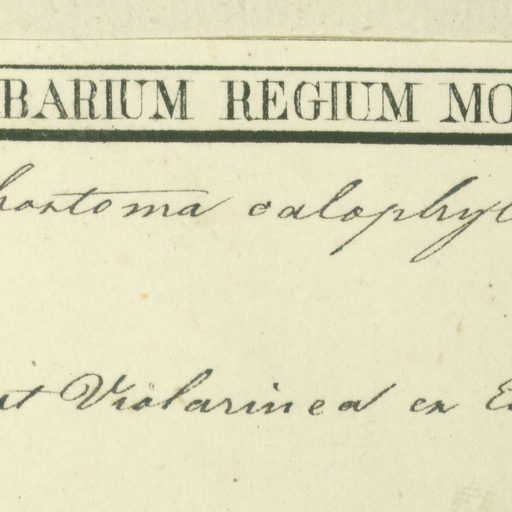 BARIUM REGIUM MO
hostoma calophyl
it Violarinea ex E